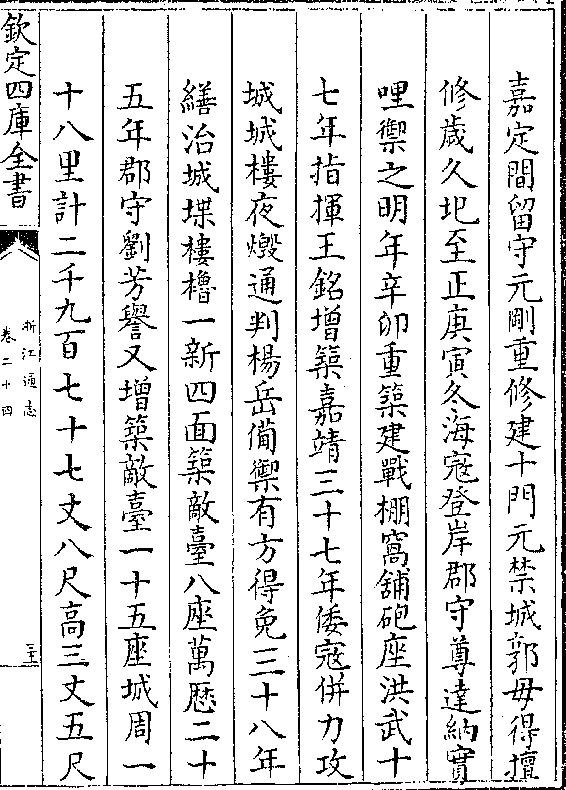 嘉定間留守元剛重修建十門元禁城郭毋得擅
修歲久圮至正庚寅冬海寇登岸郡守尊達納實
哩禦之明年辛卯重築建戰棚窩舖砲座洪武十
七年指揮王銘增築嘉靖三十七年倭寇併力攻
城城樓夜燬通判楊岳備禦有方得免三十八年
繕治城堞樓櫓一新四面築敵臺八座萬厯二十
五年郡守劉芳譽又增築敵臺一十五座城周一
十八里計二千九百七十七丈八尺高三丈五尺
欽定四庫全書
浙江通志
卷二十四
二十